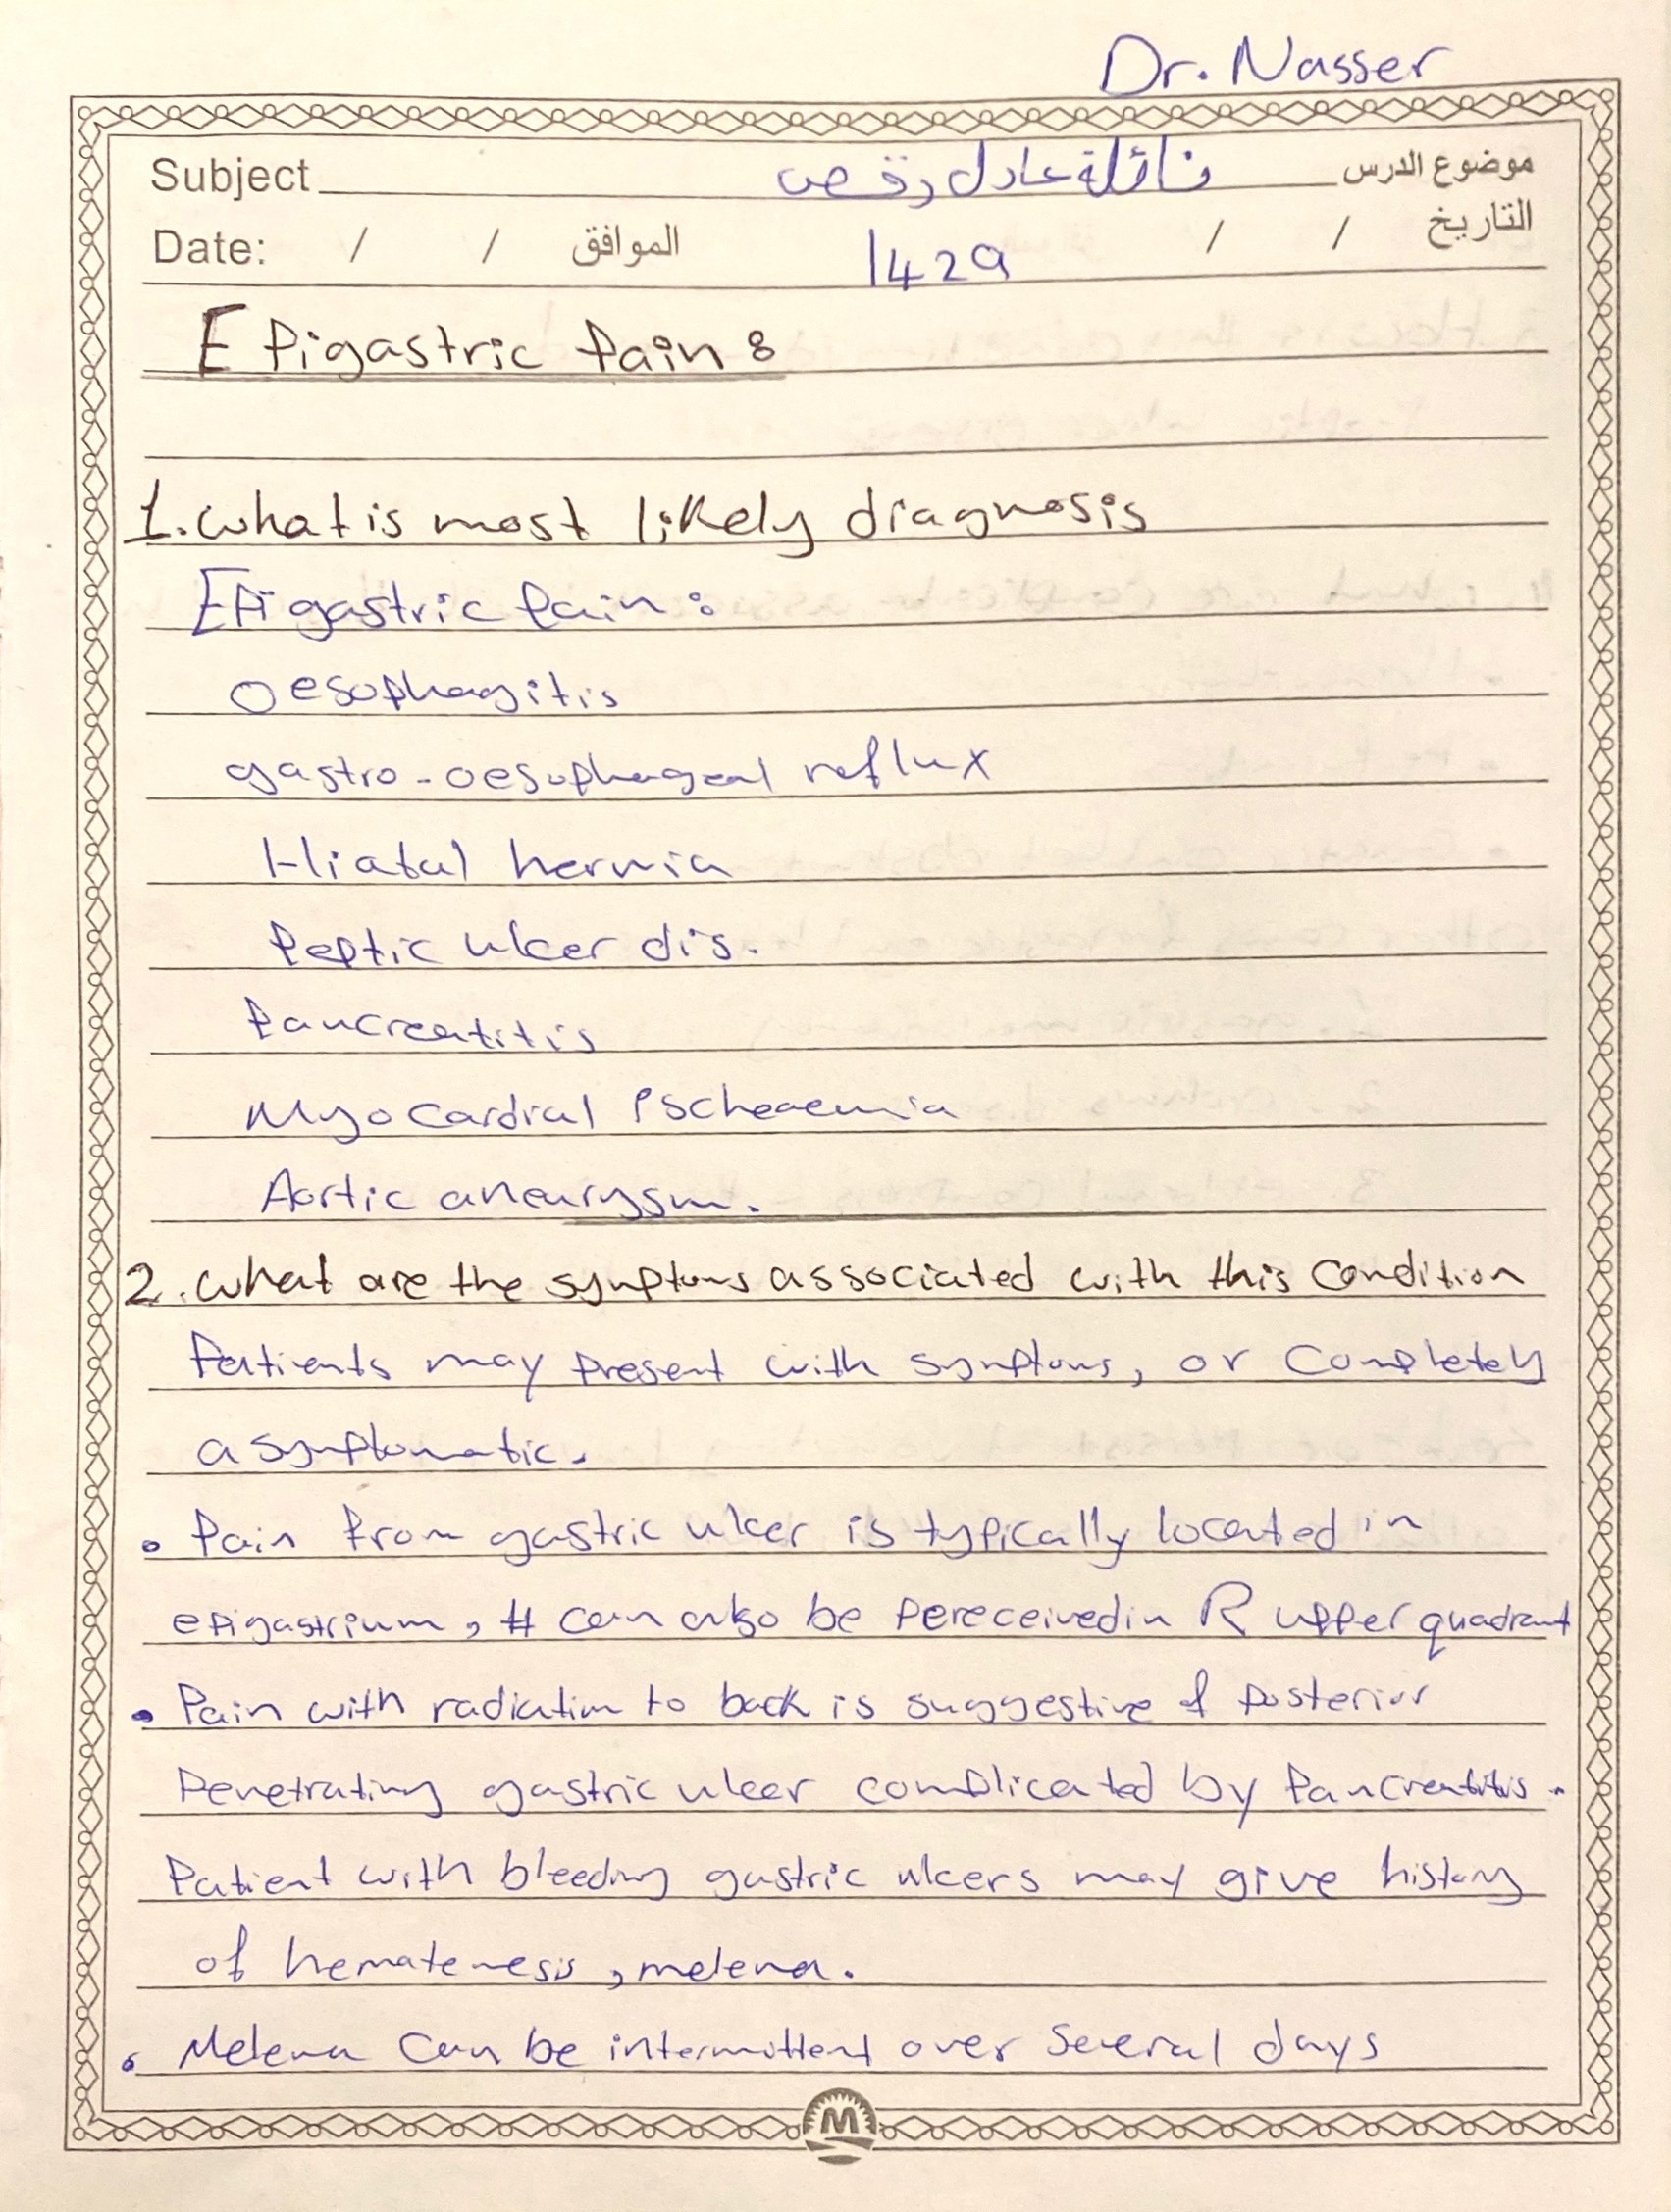 Dr. Nasser
Subject نائلة عادل رقص موضوع الدرس
Date: / / الموافق / / التاريخ
1429
Epigastric Pain :
1. what is most likely diagnosis
Epigastric Pain :
Oesophagitis
gastro-oesophageal reflux
Hiatal hernia
Peptic ulcer dis.
Pancreatitis
Myocardial ischeaemia
Aortic aneurysm.
2. what are the symptoms associated with this condition
Patients may present with symptoms, or completely
asymptomatic.
• Pain from gastric ulcer is typically located in
epigastrium, It can also be pereceived in R upper quadrant
• Pain with radiation to back is suggestive of posterior
Penetrating gastric ulcer complicated by Pancreatitis.
Patient with bleeding gastric ulcers may give history
of hematemesis, melena.
• Melena can be intermittent over several days
M